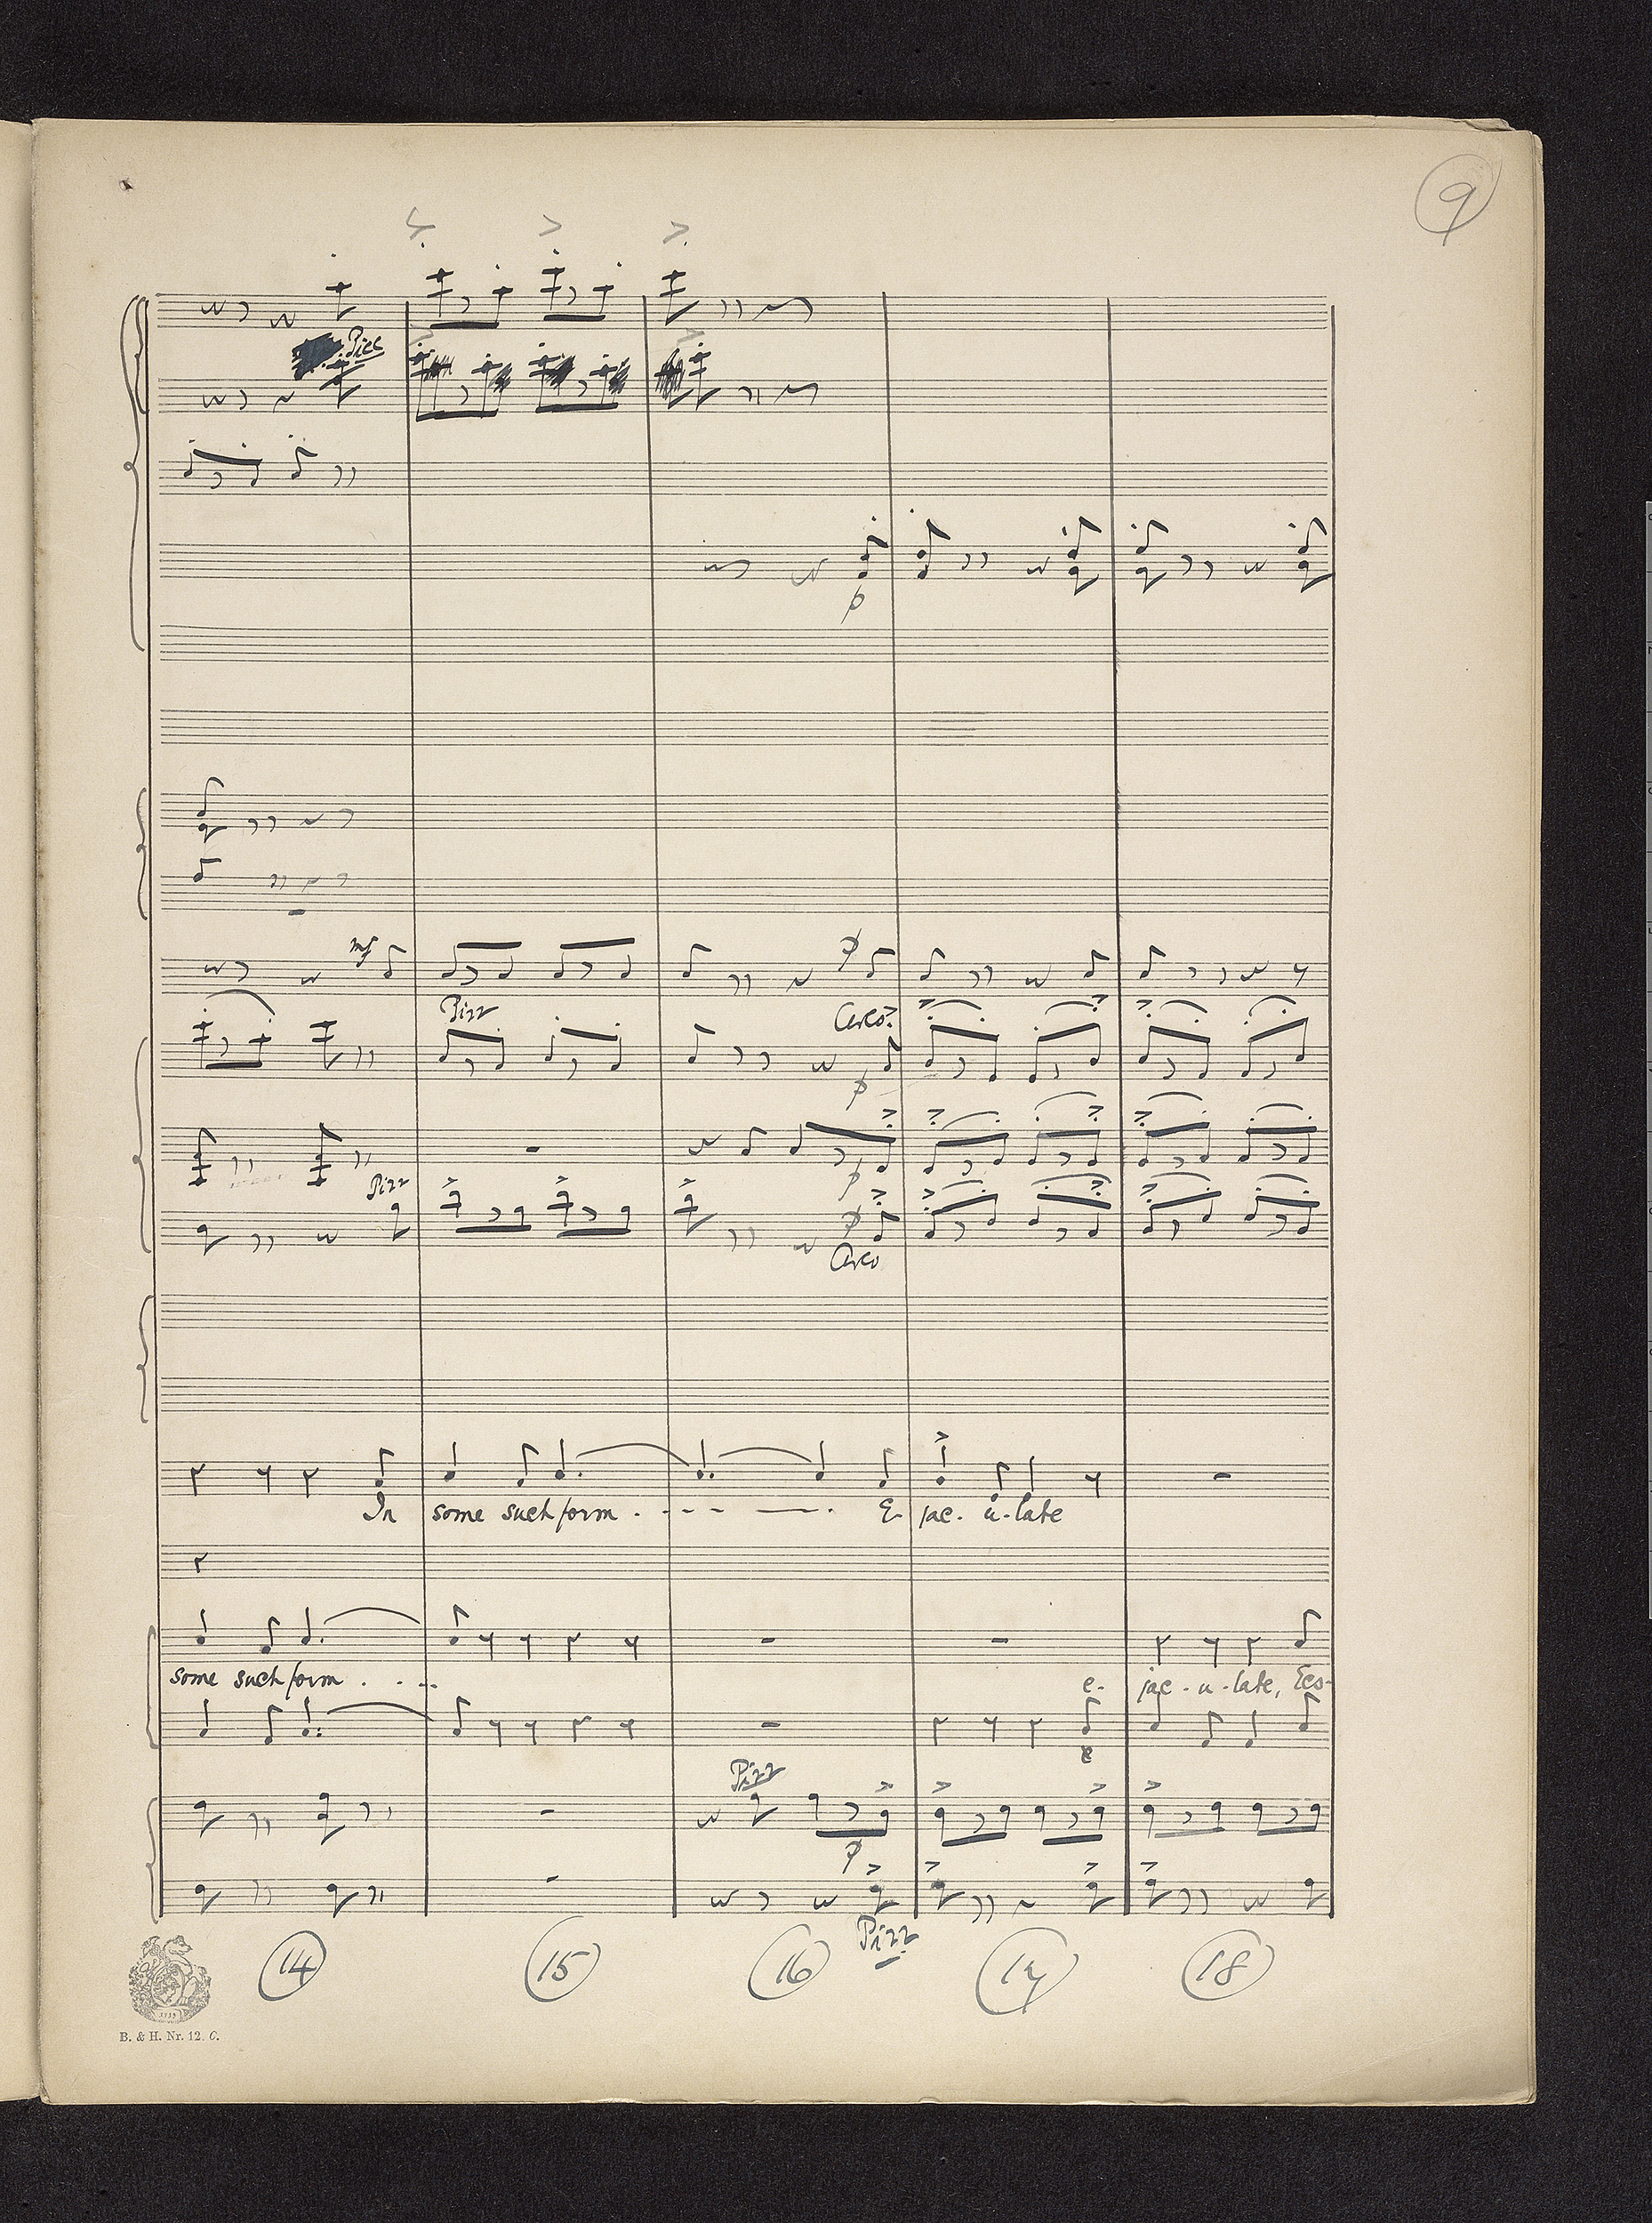 9
Picc
mf
p
p
Pizz
Arco
p
p
Pizz
p
Arco
In some such form . - - - — . E- jac. u. late
some such form . . - - e. jac - u - late, Ecs-
e
Pizz
p
Pizz
14 15 16 17 18
1719
B. & H. Nr. 12. C.